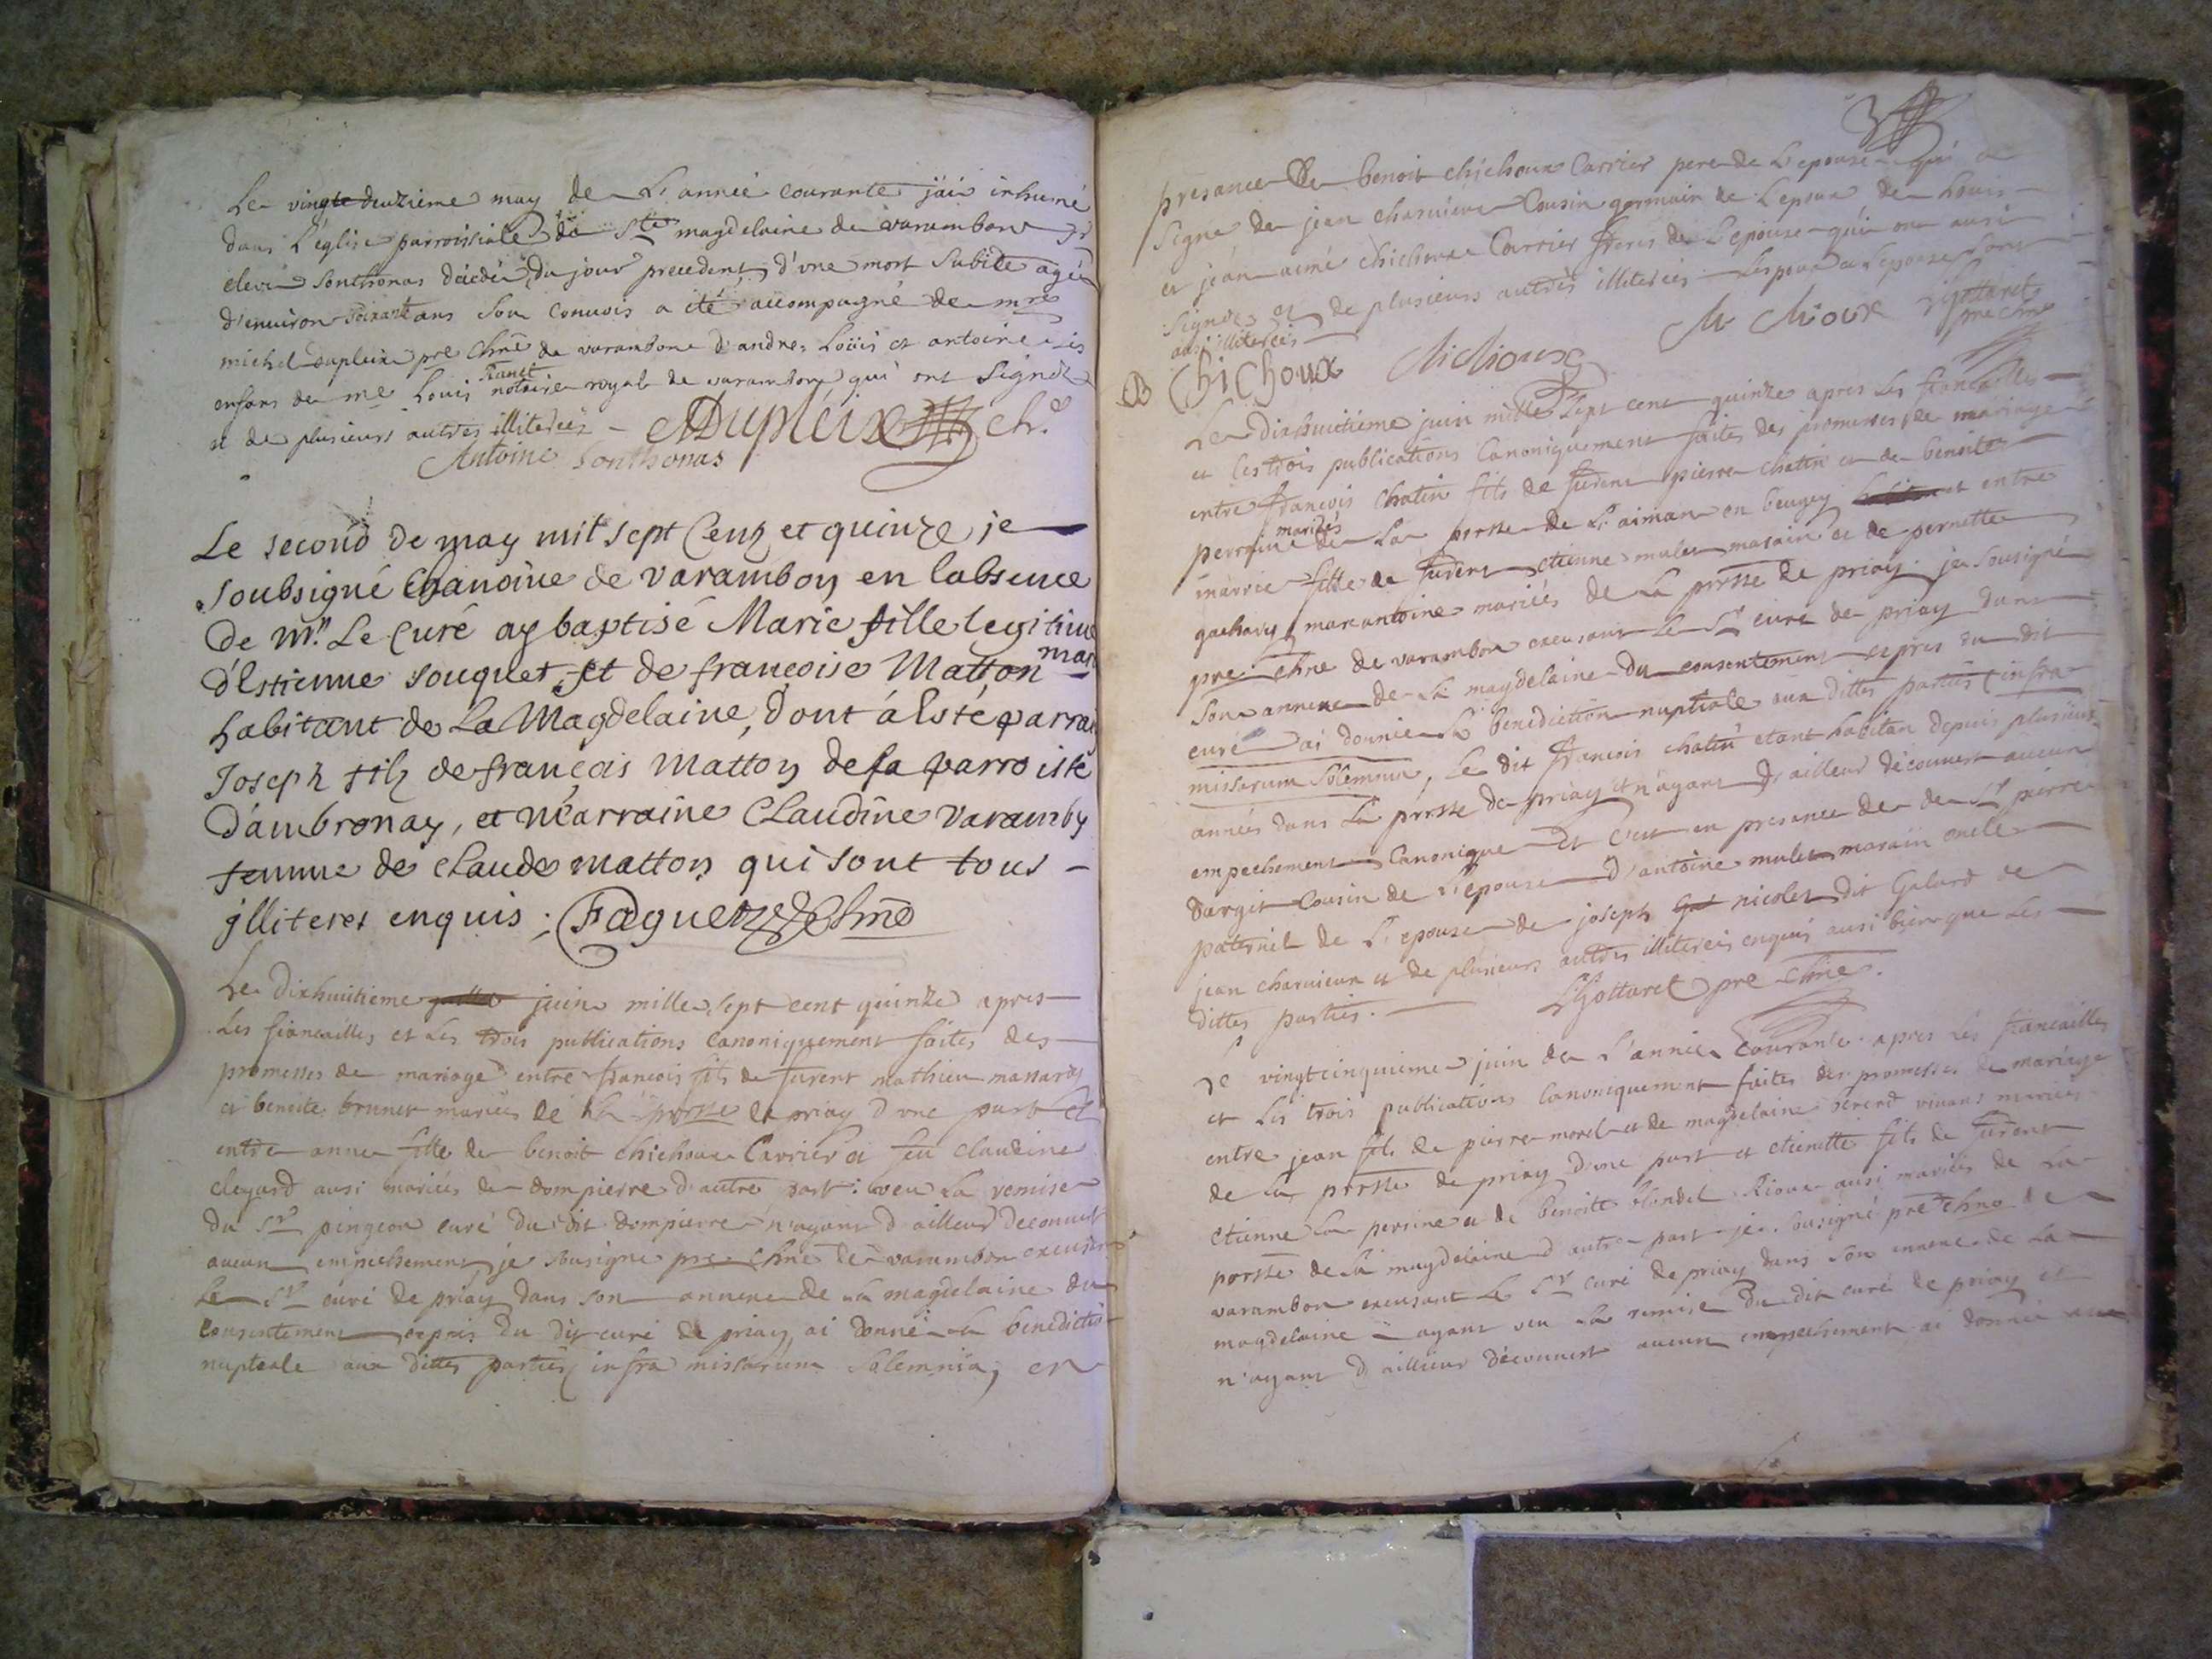 Le vingte deuzieme may de L'année courante j'ai inhumé
dans L'église parroissiale de Ste magdelaine de varambon
Sonthonas décédé Du jour precedent d'une mort Subite agé
d'environ Soixante ans Son Convois a été accompagné de mre
michel dupleix pre Chne de varambon d'andre, Loüis et antoine
enfans de me Louis notaire royal de varambon qui ont Signéz
et de plusieurs autres illiterées - Dupleix ch.
Antoine Sonthonas
Le second De may mil sept Centz et quinze je
soubsigné Chanoine de varambon en labsence
De Mr. Le Curé ay baptisé Marie fille legitime
d'Estienne souquet, et de françoise Matton
habitant de La Magdelaine, dont á Esté parrai
Joseph filz de françois Matton de la parroisse
D'ambronay, et Marraine Claudine Varamby
femme de claude matton qui sont tous -
jlliteres enquis ; Faguet Chne
Le Dixhuitieme juin mille sept cent quinze apres
Les fiancailles et Les trois publications Canoniquement faites des
promesses de mariage entre francois fils de furent mathieu massaras
et benoite brunet mariés de La porsse de priay d'une part et
entre anne fille de benoit chichoux Carrier et feu claudine
cleyard ausi mariés de dompierre d'autre part : veu La remise
du Sr pingeon curé Du dit dompierre n'ayant d'ailleur decouvert
aucun empechement, je sousigne pre Chne de varambon excusan
Le Sr curé de priay dans son annexe de La magdelaine du
Consentement expris du dit curé de priay, ai donné La benediction
nuptiale aux dittes parties infra missarum Solemnia, en
presance De benoit chichoux Carrier pere de L'epouse qui a
Signe de jean charvieux Cousin germain de L'epoux de Louis
et jean aimé chichoux Carrier freres de L'epouse qui on ausi
Signés et de plusieurs autres illiterées Lepoux et Lepouse Sont
ausi illiterées
Chichoux Chichoux
Le Dixhuitiéme juin mille Sept cent quinze apres Les fiancailles
et Les trois publications Canoniquement faites des promesses de mariage
entre francois Chatin fils de furent pierre chatin et de benoite
perroine mariés de La porsse de St aiman en beugey et entre
marie fille de furent etienne mulet masain et de pernette
marcantoine mariés de La porsse de priay. je Sousigné
pre chne de varambon excusant Le Sr curé de priay dans
Son annexe de La magdelaine du consentement expris du dit
curé ai donné La benediction nuptiale aux dittes parties infra
missarum Solemnia, Le dit francois chatin etant habitan depuis plusieurs
années dans La porsse de priay et n'ayant d'ailleur découvert aucun
empechement Canonique Et c'est en presance de Sr pierre
Dargit Cousin de L'epouse D'antoine mulet masain oncle
paternel de L'epouse de joseph nicolet dit Galard de
jean charvieux et de plusieurs autres illiterées enquis ausi bien que Les
dittes parties. LGottaret pre Chne.
Le vingtcinquieme juin de L'année Courante apres Les fiancailles
et Les trois publications Canoniquement faites des promesses de mariage
entre jean fils de pierre morel et de magdelaine berard vivans mariés
de La porsse de priay d'une part et etienette fils de furent
etienne La perrine et de benoite blondel Rioux ausi mariés de La
porsse de La magdelaine d'autre part je Sousigné pre chne de
varambon excusant Le Sr curé de priay dans Son annexe de La
magdelaine ayant veu La remise Du dit curé de priay et
n'ayant d'ailleur découvert aucun empechement ai donné aux